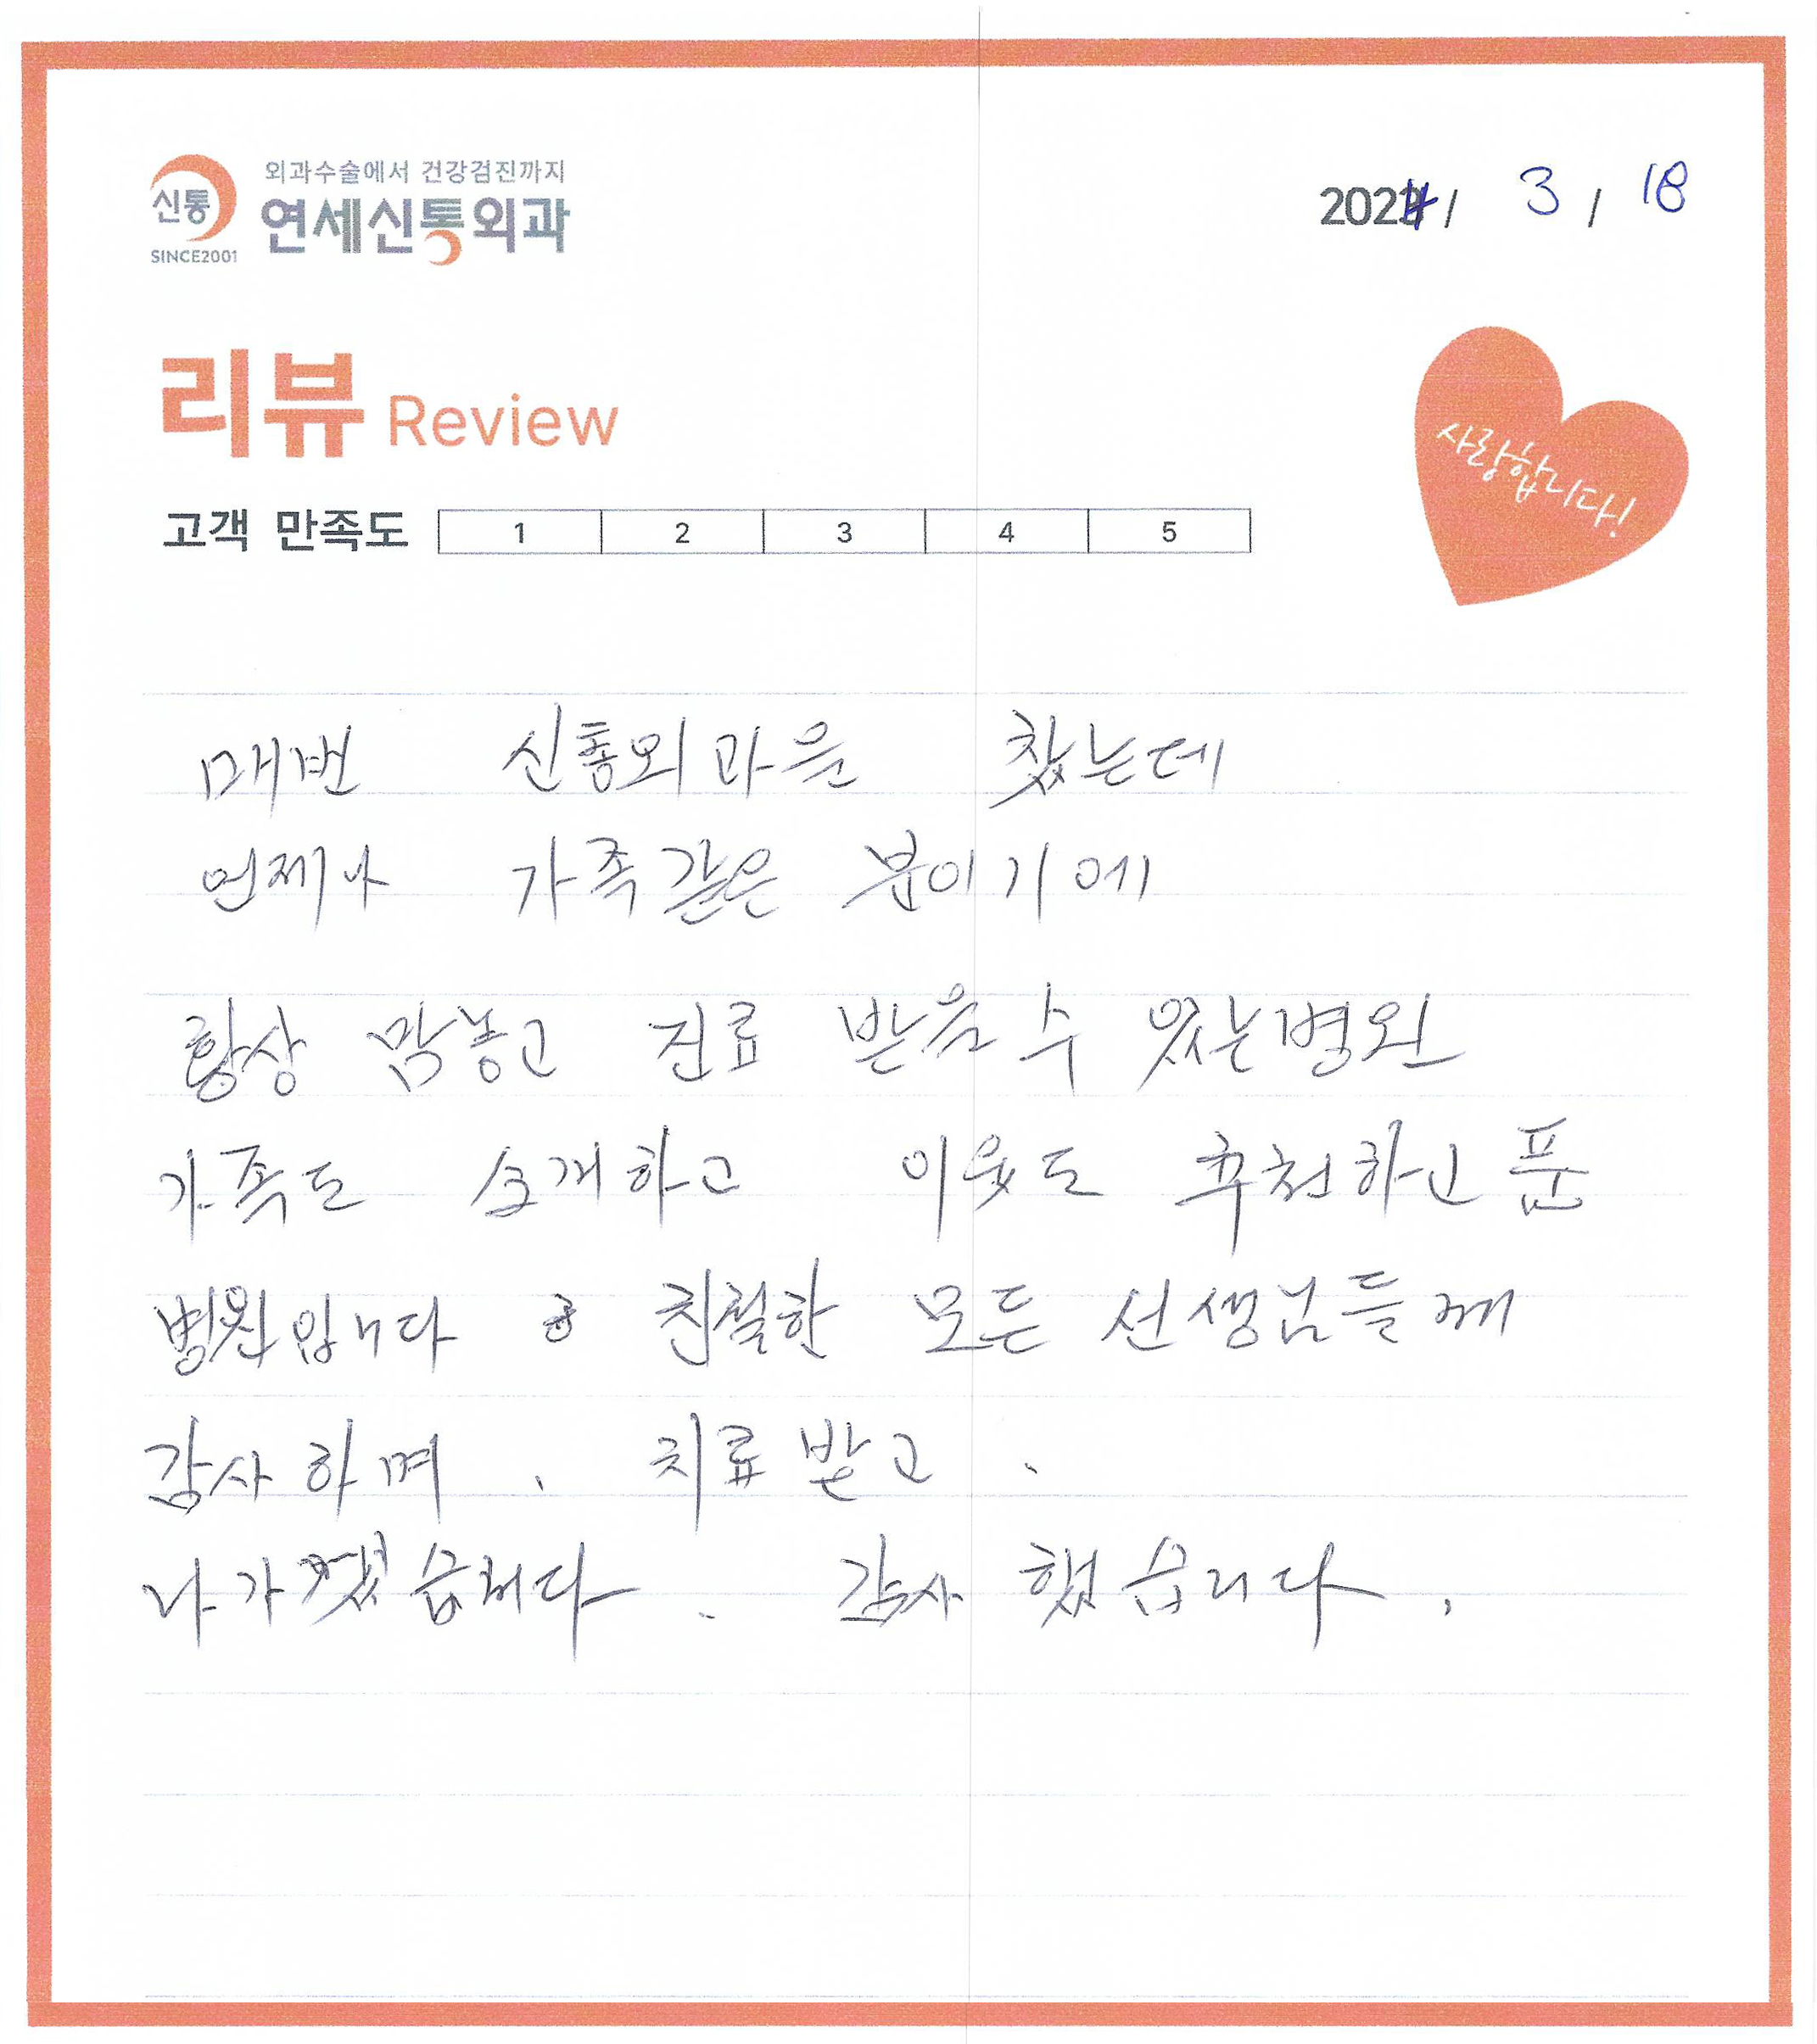 신통
SINCE2001
외과수술에서 건강검진까지
연세신통외과
2024 / 3 / 18
리뷰 Review
사랑합니다!
고객 만족도 1 2 3 4 5
매번 신통외과을 찾는데
언제나 가족같은 분이기에
항상 맘놓고 진료 받을 수 있는병원
가족도 소개하고 이웃도 추천하고픈
병원입니다 친절한 모든 선생님들께
감사하며. 치료받고.
나가겠습니다. 감사했습니다.